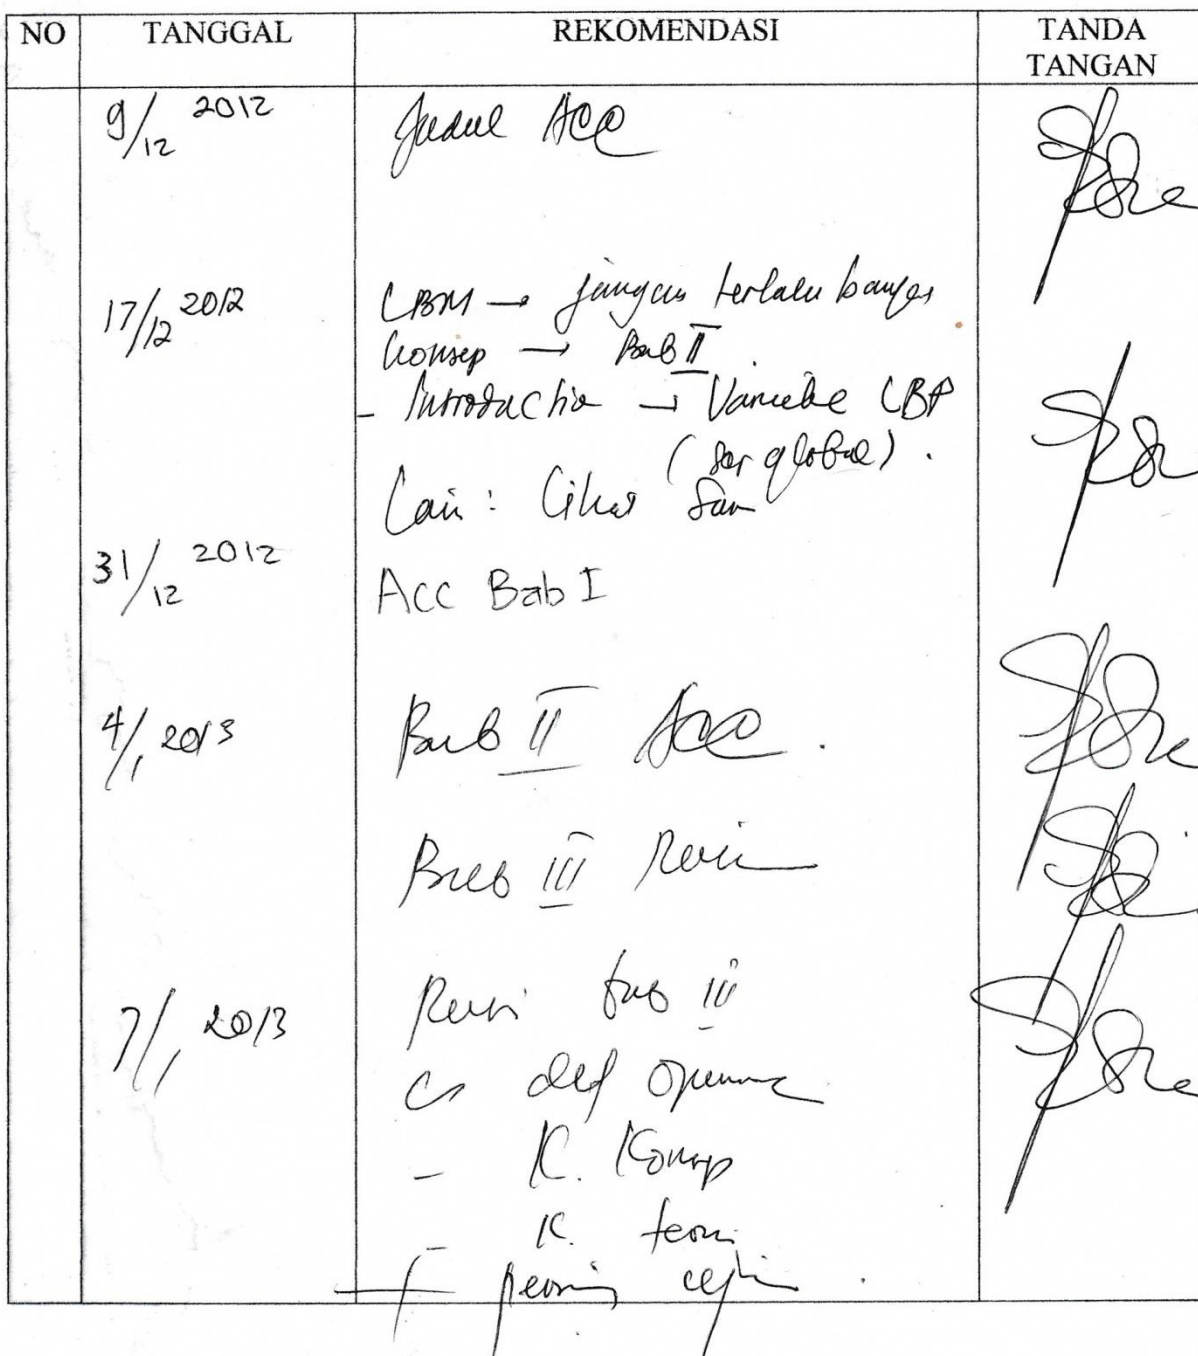 NO TANGGAL REKOMENDASI TANDA TANGAN
9/12 2012 Judul ACC
17/12 2012 LBM → jangan terlalu banyak
Konsep → Bab II.
- Introduction → Variabel LBP
(global).
Lain: 
31/12 2012 Acc Bab I
4/1 2013 Bab II Acc.
Bab III Revisi
7/1 2013 Revisi bab III
def
- K. Konsep
- K. teori